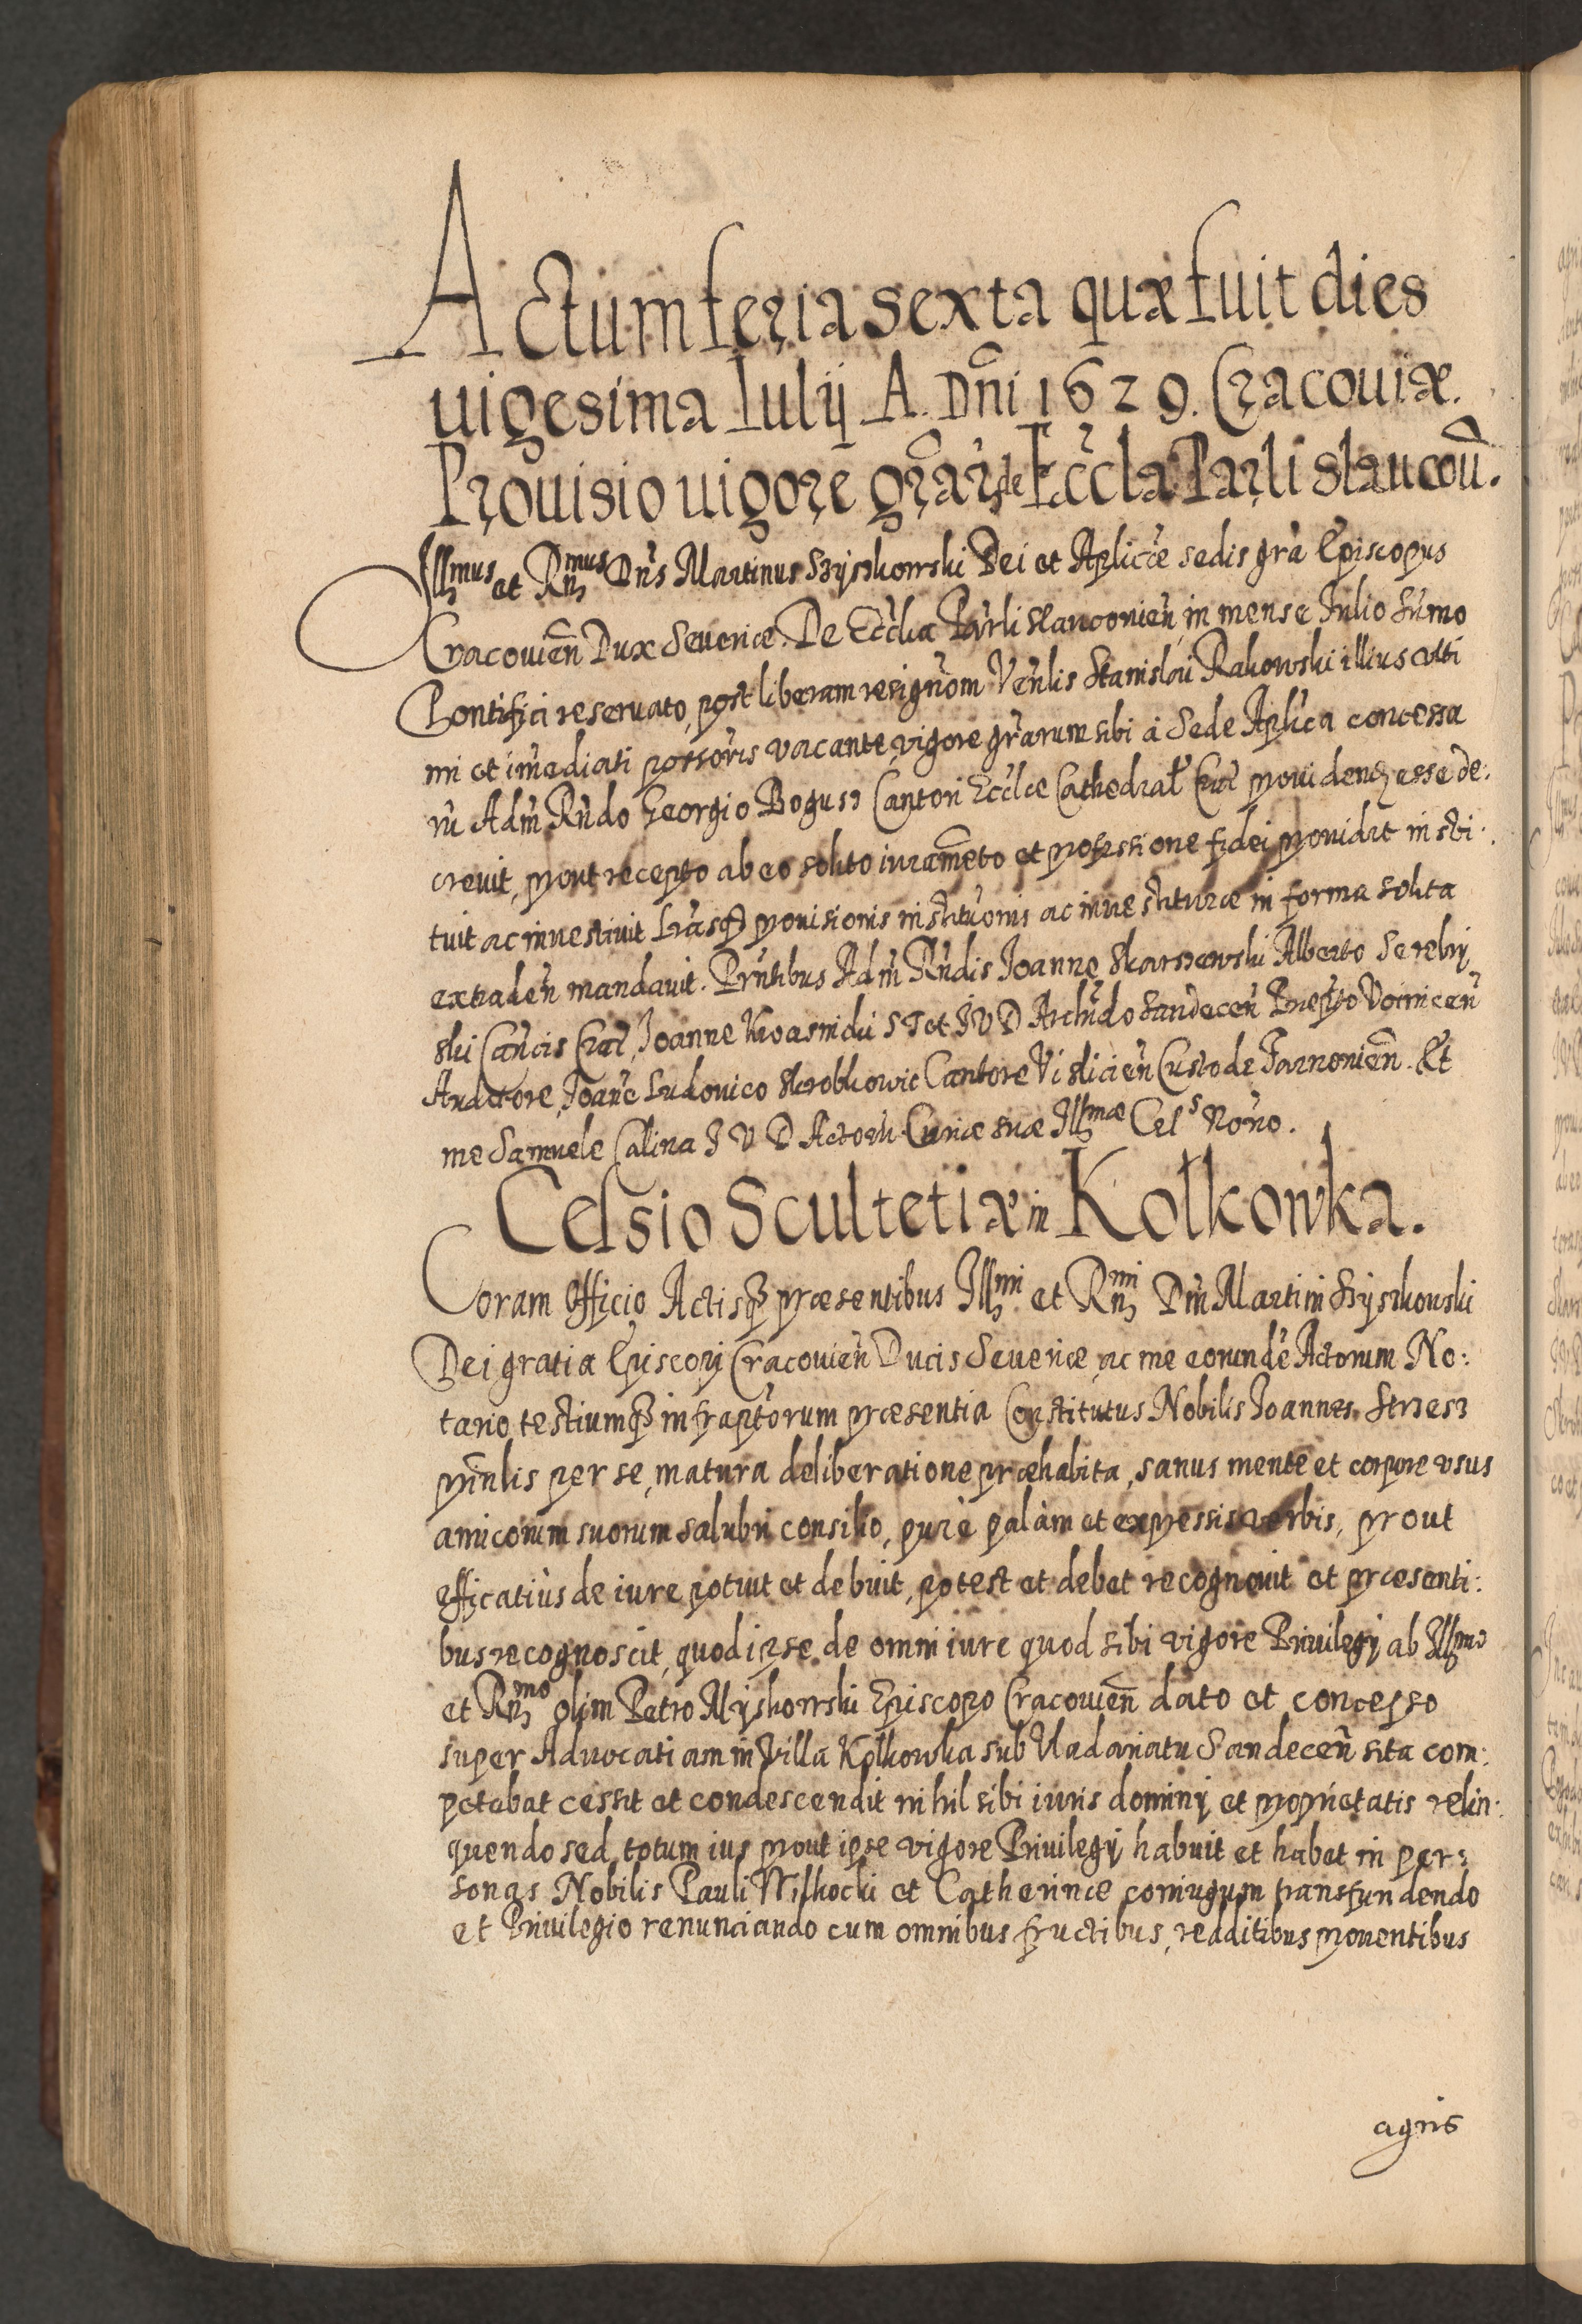 Actum feria sexta quæ fuit dies
uigesima Iulij A. Dñi 1629. Cracouiæ.
Prouisio uigore grãr̃ de Eccla Parli Slaucou̅.
Illmus et Rñmus Dñs Martinus Szyszkowski Dei et Aplicæ sedis gr̃a Episcopus
Cracouien̄ Dux Seueriæ. De Ecc̃lia Par̃li Slauconien̄, in mense Iulio Sũmo
Pontifici reseruato, post liberam resignõm Ven̄lis Stanislai Rakowski illius ulti
mi et im̃ediati possor̃is vacante, vigore gr̃arum sibi à Sede Apl̃ica concessa
rũ Adm̃ Rñdo Georgio Bogusz Cantori Ecc̃læ Cathedral̃ Crac̃ prouidenḡ esse de:
creuit, prout recepto ab eo solito iuram̃ento et professione fidei prouidit insti:
tuit ac inuestiuit Lr̃asq̃ prouisionis institũonis ac inuestituræ in forma solita
extraden̄ mandauit. Pr̃ntibus Adm̃ Rñdis Joanne Skarszewski Alberto Serebrij
ski Can̄cis Crac̃, Joanne Kwasnicki S T et I V D Archid̃o Sandecen̄ Præp̃to Voinicen̄
Auditore, Joañe Ludouico Skrobkowic Cantore Vislicien̄ Custode Tarnouien̄. Et
me Samuele Calina I V D Actorũ Curiæ suæ Illmæ Cels Nor̃io.
Cessio Scultetiæ in Kolkowka.
Coram Officio Actisq̃ præsentibus Illmi et Rñmi Dñi Martini Szyszkowski
Dei gratia Episcopi Cracouien̄ Ducis Seueriæ, ac me eorundẽ Actorum No:
tario testiumq̃ infrapt̃orum præsentia Constitutus Nobilis Joannes Strzesz
prin̄lis per se, matura deliberatione præhabita, sanus mente et corpore vsus
amicorum suorum salubri consilio, purè palàm et expressis verbis, prout
efficatiùs de iure potuit et debuit, potest et debet recognouit et præsenti:
bus recognoscit, quod ipse de omni iure quod sibi vigore Priuilegij ab Illmo
et Rñmo olim Petro Myszkowski Episcopo Cracouien̄ dato et concesso
super Aduocatiam in Villa Kolkowka sub Vladariatu Sandecen̄ sita com:
petebat cessit et condescendit nihil sibi iuris dominij et proprietatis relin:
quendo sed totum ius prout ipse vigore Priuilegij habuit et habet in per:
sonas Nobilis Pauli Wilkocki et Catherinæ coniugum transfundendo
et Priuilegio renunciando cum omnibus fructibus, redditibus prouentibus
agris